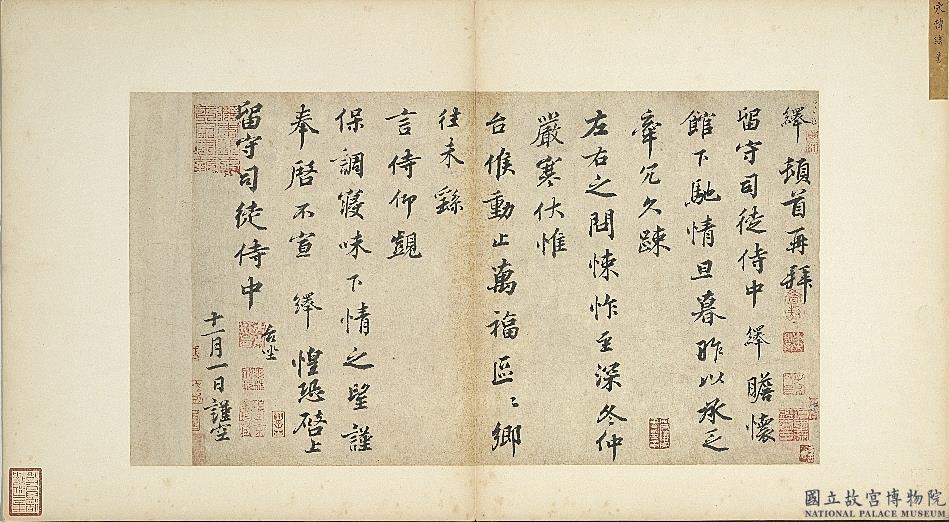 宋韓絳書
絳頓首再拜
留守司徒侍中 絳 瞻懷
館下馳情旦暮昨以承乏
宰允久踈
左右之問悚怍至深冬仲
嚴寒伏惟
台候動止萬福區區鄉
往未繇
言侍仰覬
保調寢味下情之望謹
奉啓不宣 絳 惶恐啓上
留守司徒侍中
台坐
十一月一日謹空
國立故宮博物院
NATIONAL PALACE MUSEUM